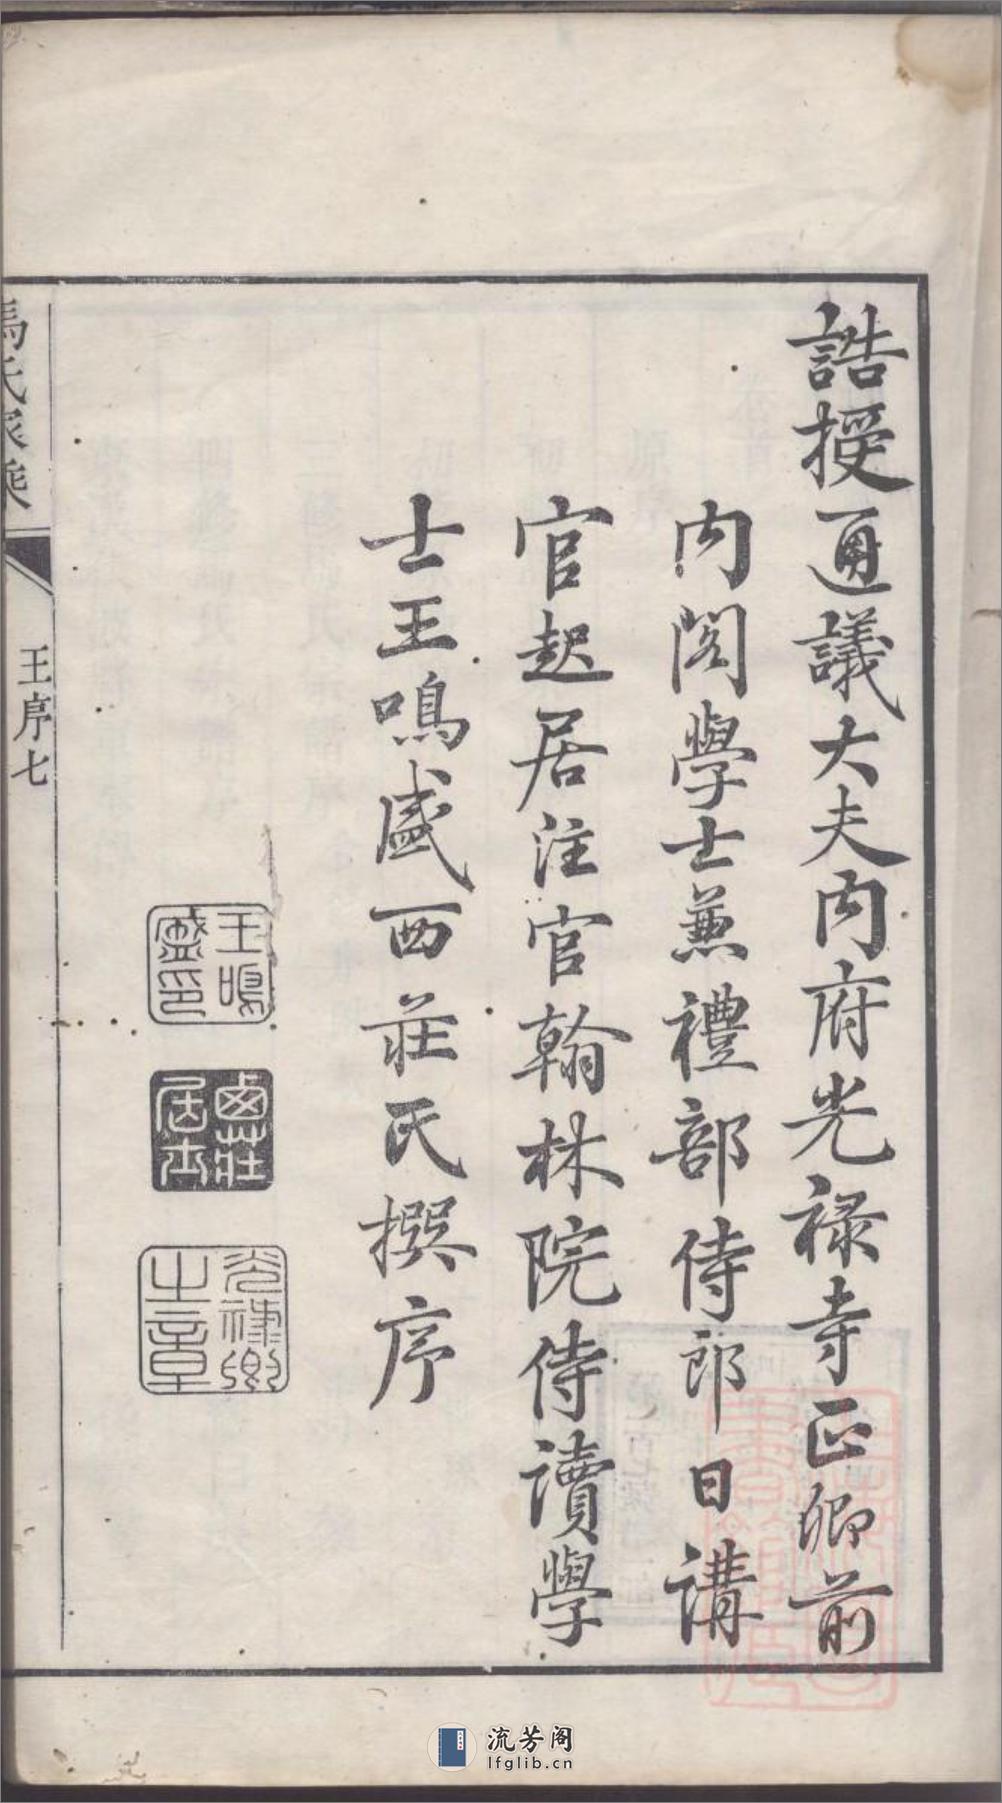 誥授通議大夫內府光祿寺正卿前
內閣學士兼禮部侍郎日講
官起居注官翰林院侍讀學
士王鳴盛西莊氏撰序
王鳴盛印
西莊居士
光祿卿之章
馮氏家乘
王序七
流芳阁
lfglib.cn